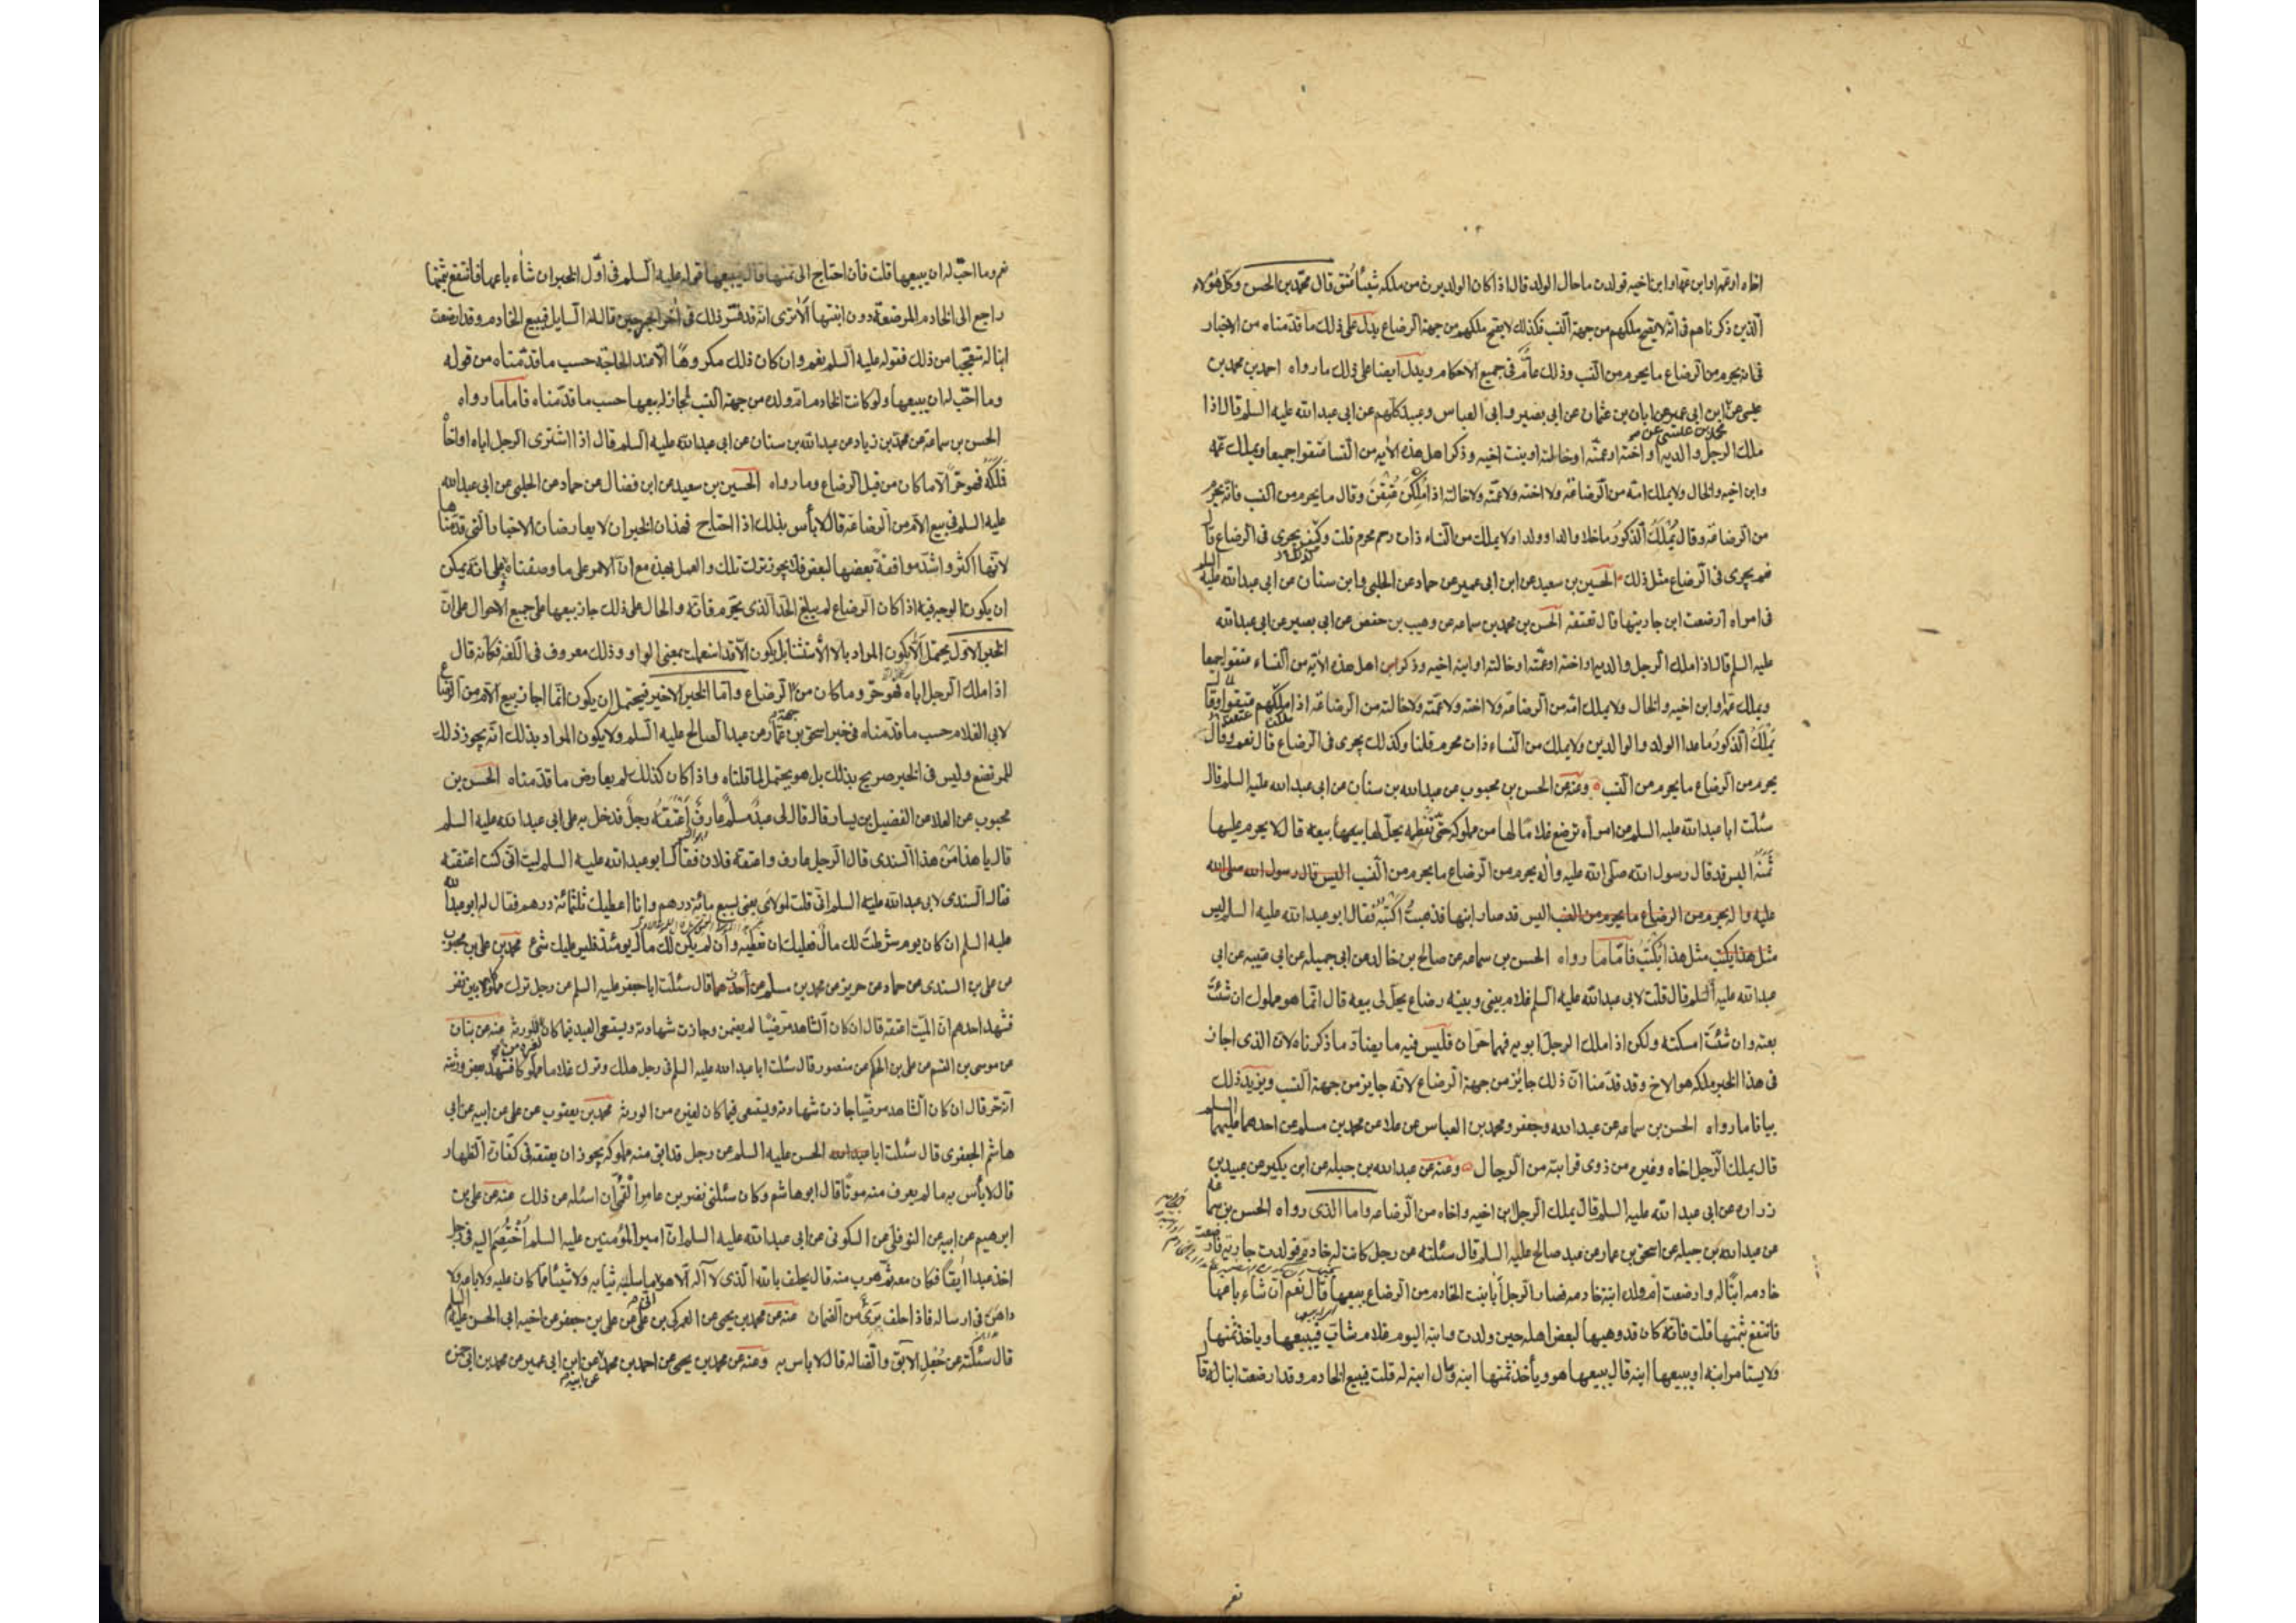 اخاه او عمّه او ابن عمّها و ابن اخيه فولدت ما حال الولد قال اذا كان الولد يرث من ملكه شيئا عُتق قال محمّد بن الحسن وكلّ هؤلاء
الّذين ذكرناهم فى انّه لا يصحّ ملكهم من جهة النسب فكذلك لا يصحّ ملكهم من جهة الرضاع يدلّ على ذلك ما قدّمناه من الاخبار
فى انه يحرم من الرضاع ما يحرم من النسب وذلك عامّ فى جميع الاحكام ويدلّ ايضا على ذلك ما رواه احمد بن محمد بن
عيسى عن ابن ابى عمير عن ابان بن عثمان عن ابى بصير و ابى العباس و عبيد كلّهم عن ابى عبد الله عليه السلم قال اذا
محمد بن عيسى عن
ملك الرجل والديه او اخته او عمّته او خالته او بنت اخيه وذكر اهل هذه الآيه من النسا عتقوا جميعا ويملك عمّه
وابن اخيه والخال ولا يملك امّه من الرّضاعة ولا اخته ولا عمّته ولا خالته اذا مُلِكْنَ عُتِقْنَ وقال ما يحرم من النسب فانّه يحرم
من الرضاعة وقال يُمْلَكُ الذكورُ ما خلا والدا وولدا ولا يملك من النساء ذات رحم محرم قلت وكيف يجرى فى الرضاع قا
نعم يجرى فى الرّضاع مثل ذلك الحسين بن سعيد عن ابن ابى عمير عن حماد عن الحلبى وابن سنان عن ابى عبد الله عليه السلم
فى امراه ارضعت ابن جاريتها قال تعتقه الحسن بن محمد بن سماعه عن وهيب بن حفص عن ابى بصير عن ابى عبد الله
عليه السلم قال اذا ملك الرجل والديه او اخته او عمّته او خالته او ابنه اخيه وذكر اهل هذه الآية من النساء عتقوا جميعا
ويملك عمّه وابن اخيه والخال ولا يملك امّه من الرضاعة ولا اخته ولا عمّته ولا خالته من الرضاعة اذا ملكهم عتقوا وقا
يُمْلَكُ الذكورُ ما عدا الولد والوالدين ولا يملك من النساء ذات محرم قلنا وكذلك يجرى فى الرضاع قال نعم وقال
يحرم من الرضاع ما يحرم من النسب وعنه عن الحسن بن محبوب عن عبد الله بن سنان عن ابى عبد الله عليه السلم قال
سئلت ابا عبد الله عليه السلم عن امرأه ترضع غلاما لها من مملوكه حتّى تفطمه يحلّ لها بيعه قال لا يحرم عليها
ثمنه اليس قد قال رسول الله صلّى الله عليه وآله يحرم من الرضاع ما يحرم من النسب اليس قال رسول الله صلى الله
عليه و اله يحرم من الرضاع ما يحرم من النسب اليس قد صار ابنها فذهبتُ اكتبه فقال ابو عبد الله عليه السلم ليس
مثل هذا يكتب مثل هذا يُكْتَبُ فامّا ما رواه الحسن بن سماعه عن صالح بن خالد عن ابى جميله عن ابى عتيبه عن ابى
عبد الله عليه السلم قال قلت لابى عبد الله عليه السلم غلام بينى وبينه رضاع يحلّ لى بيعه قال انّما هو مملوك ان شئت
بعته وان شئت امسكته ولكن اذا ملك الرجل ابويه فهما حرّان فليس فيه ما يضادّ ما ذكرناه لانّ الذى اجاز
فى هذا الخبر ملكه هو الاخ وقد قدّمنا انّ ذلك جايز من جهة الرضاع لانّه جايز من جهة النسب ويزيد ذلك
بيانا ما رواه الحسن بن سماعه عن عبد الله وجعفر ومحمد بن العباس عن علا عن محمد بن مسلم عن احدهما عليهما السلم
قال يملك الرّجل اخاه وغيره من ذوى قرابته من الرجال وعنه عن عبد الله بن جبله عن ابن بكير عن عبيد بن
زراره عن ابى عبد الله عليه السلم قال يملك الرجل ابن اخيه واخاه من الرّضاعه واما الذى رواه الحسن بن سماعه
عن عبد الله بن جبله عن اسحق بن عمار عن عبد صالح عليه السلم قال سئلته عن رجل كانت له خادم فولدت جاريه فارضعت
خادمه ابنًا له وارضعت امّ ولده ابنة خادمه فصار الرجل ابا بنت الخادم من الرضاع يبيعها قال نعم ان شاء باعها
فانتفع بثمنها قلت فانّه كان قد وهبها لبعض اهله حين ولدت وابنه اليوم غلام شابّ فيبيعها وياخذ ثمنها
ولا يستامر ابنه او يبيعها ابنه قال يبيعها هو ويأخذ ثمنها ابنه ومال ابنه له قلت فيبيع الخادم وقد ارضعت ابنا له قا
نعم
نعم وما احبّ له ان يبيعها قلت فان احتاج الى ثمنها قال يبيعها قوله عليه السلم فى اوّل الخبر ان شاء باعها فانتفع بثمنها
راجع الى الخادم المرضعة دون ابنتها ألا ترى انّه قد فسّر ذلك فى آخر الخبر حين قال له السايل فيبيع الخادم وقد ارضعت
ابنا له تعجّبا من ذلك فقوله عليه السلم نعم وان كان ذلك مكروهًا الّا عند الحاجة حسب ما قدّمناه من قوله
وما احبّ له ان يبيعها ولو كانت الخادم امّ ولده من جهة النسب لجاز له بيعها حسب ما قدّمناه فاما ما رواه
الحسن بن سماعة عن محمد بن زياد عن عبد الله بن سنان عن ابى عبد الله عليه السلم قال اذا اشترى الرجل اباه او اخاه
فملكه فهو حرّ الا ما كان من قبل الرضاع وما رواه الحسين بن سعيد عن ابن فضال عن حماد عن الحلبى عن ابى عبد الله
عليه السلم فى بيع الامّ من الرضاعة قال لا بأس بذلك اذا احتاج فهذان الخبران لا يعارضان الاخبار الّتى قدّمناها
لانّها اكثر واشدّ موافقةً بعضها لبعض فلا يجوز ترك تلك والعمل بهذه مع انّ الامر على ما وصفناه على انّه يمكن
ان يكون الوجه فيه اذا كان الرضاع لم يبلغ الحدّ الذى يحرّم فانّه والحال على ذلك جاز بيعها على جميع الاحوال على انّ
الخبر الاوّل يحتمل ألّا يكون المراد بالّا الأستثنا بل يكون الّا قد استعملت بمعنى الواو وذلك معروف فى اللغه فكانه قال
اذا ملك الرجل اباه فهو حرّ وما كان من الرضاع وامّا الخبر الاخير فيحتمل ان يكون انّما اجاز بيع الامّ من الرّضاع
جهة
لابى الغلام حسب ما قدّمناه فى خبر اسحق بن عمّار عن عبد الصالح عليه السلم ولا يكون المراد بذلك انّه يجوز ذلك
للمرتضع وليس فى الخبر صريح بذلك بل هو يحتمل لما قلناه واذا كان كذلك لم يعارض ما قدّمناه الحسن بن
محبوب عن العلا عن الفضيل بن يسار قال قال لى عبدٌ مسلمٌ عارفٌ أعْتَقَهُ رجلٌ فدخل به على ابى عبد الله عليه السلم
قال يا هذا مَنْ هذا السندى قال الرجل عارف واعتقه فلان فقال ابو عبد الله عليه السلم ليت انّى كنت اعتقته
فقال السندى لابى عبد الله عليه السلم انّى قلت لمولاىَ بعنى بسبع مائة درهم وانا اعطيك ثلثمائة درهم فقال له ابو عبد الله
عليه السلم ان كان يوم شرطت لك مالٌ فعليك ان تعطيه وان لم يكن لك مال يومئذ فليس عليك شئ محمد بن على بن محبوب
عن على بن السندى عن حماد عن حريز عن محمد بن مسلم عن احدهما قال سئلت ابا جعفر عليه السلم عن رجل ترك مملوكا بين نفر
فشهد احدهم انّ الميّت اعتقه قال ان كان الشاهد مرضيّا لم يضمن وجازت شهادته ويستسعى العبد فيما كان للورثه عنه عن بنان
عن موسى بن القسم عن على بن الحكم عن منصور قال سئلت ابا عبد الله عليه السلم فى رجل هلك وترك غلاما مملوكا فشهد بعض ورثته
انّه حرّ قال ان كان الشاهد مرضيّا جازت شهادته ويستسعى فيما كان لغيره من الورثه محمد بن يعقوب عن على عن ابيه عن ابى
هاشم الجعفرى قال سئلت ابا عبد الله الحسن عليه السلم عن رجل قد ابق منه مملوكه يجوز ان يعتقه فى كفّارة الظهار
قال لا بأس به ما لم يعرف منه موتًا قال ابو هاشم وكان سئلنى نصر بن عامر القمّى ان اسئله عن ذلك عنه عن على بن
ابرهيم عن ابيه عن النوفلى عن السكونى عن ابى عبد الله عليه السلم انّ امير المؤمنين عليه السلم اختصم اليه فى رجل
اخذ عبدا آبقًا فكان معه ثمّ هرب منه قال يحلف بالله الّذى لا آله الّا هو ما سلبه ثيابه ولا شيئا ممّا كان عليه ولا باعه ولا
داهن فى ارساله فاذا حلف برئ من الضمان عنه عن محمد بن يحيى عن العمركى بن على عن على بن جعفر عن اخيه ابى الحسن عليه السلم
قال سئلته عن جُعْلِ الآبق والضّاله قال لا باس به وعنه عن محمد بن يحيى عن احمد بن محمد عن ابن ابى عمير عن محمد بن ابى حمزه
عن ابيه